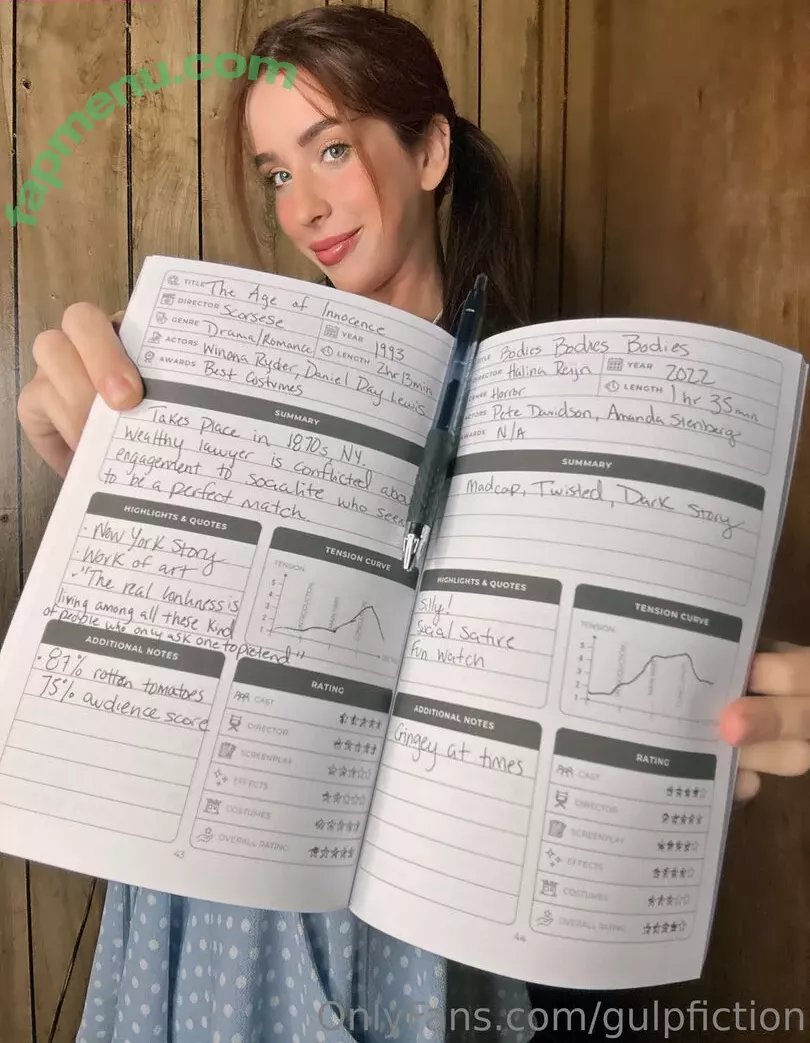 fapmenu.com
TITLE The Age of Innocence
DIRECTOR Scorsese
YEAR 1993
GENRE Drama/Romance
LENGTH 2hr 13min
ACTORS Winona Ryder, Daniel Day Lewis
AWARDS Best Costumes
SUMMARY
Takes Place in 1870s NY.
Wealthy lawyer is conflicted abou
engagement to socialite who see
to be a perfect match.
HIGHLIGHTS & QUOTES
· New York Story
· Work of art
· "The real lonliness is
living among all these kind
of people who only ask one to pretend"
TENSION CURVE
TENSION
5
4
3
2
1
INTRODUCTION
ADDITIONAL NOTES
· 87% rotten tomatoes
75% audience score
RATING
CAST
DIRECTOR
SCREENPLAY
EFFECTS
COSTUMES
OVERALL RATING
43
Bodies Bodies Bodies
Halina Reijn
YEAR 2022
Horror
LENGTH 1 hr 35 min
Pete Davidson, Amanda Stenberg
N/A
SUMMARY
Madcap, Twisted, Dark Story
HIGHLIGHTS & QUOTES
Silly!
Social Satire
Fun Watch
TENSION CURVE
TENSION
5
4
3
2
1
INTRODUCTION
ADDITIONAL NOTES
Cringey at times
RATING
CAST
DIRECTOR
SCREENPLAY
EFFECTS
COSTUMES
OVERALL RATING
44
OnlyFans.com/gulpfiction